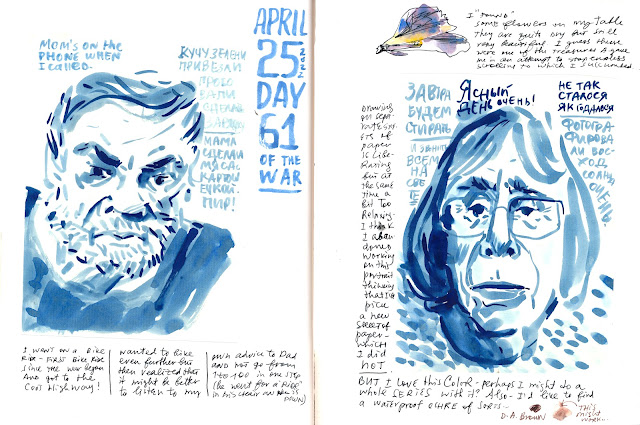 MOM'S ON THE
PHONE WHEN
I CALLED.
КУЧУ ЗЕЛЕНИ
ПРИВЕЗЛИ
МАМА
СДЕЛАЛИ
МАССА
КАРТОШ
ЕЦКОЙ.
ПИР!
APRIL
25
2022
DAY
61
OF THE
WAR
I WENT ON A BIKE
RIDE - FIRST BIKE RIDE
SINCE THE WAR BEGAN
AND GOT TO THE
COOL HIGHWAY!
WANTED TO BIKE
EVEN FURTHER BUT
THEN REALIZED THAT
IT MIGHT BE BETTER
TO LISTEN TO MY
OWN ADVICE TO DAD
AND NOT GO FROM
1 TO 100 IN ONE STEP
(HE WENT FOR A "RIDE"
IN HIS CHAIR
I "FOUND"
SOME FLOWERS ON MY TABLE
THEY ARE QUITE DRY BUT STILL
VERY BEAUTIFUL I GUESS THESE
WERE ONE OF THE TREASURES
ME IN AN ATTEMPT TO STOP ENDLESS
SCROLLING TO WHICH I SUCCUMBED.
DRAWING
ON SEPA-
RATE SHE-
ETS OF
PAPER
IS LIBE-
RATING
BUT AT
THE SAME
TIME A
BIT TOO
RELAXING-
I THINK
I ABAN-
DONED
WORKING
ON THIS
PORTRAIT
THINKING
THAT I'LL
PICK
A NEW
SHEET OF
PAPER-
WHICH
I DID
NOT
ЗАВТРА
БУДЕМ
СТИРАТЬ
И ЗВОНИТЬ
ВСЕМ
НА
СВЕ
ТЕ
ЯСНЫЙ
ДЕНЬ ОЧЕНЬ!
НЕ ТАК
СТАЛОСЯ
ЯК ГАДАЛОСЯ
ФОТОГРА-
ФИРОВА
ЛИ ВОС-
ХОД
СОЛНЦА
ОЧЕНЬ.
BUT I LOVE THIS COLOR - PERHAPS I MIGHT DO A
WHOLE SERIES WITH IT? ALSO - I'D LIKE TO FIND
A WATERPROOF OCHRE OF SORTS -
D.A. BROWN
THIS
MIGHT
WORK...